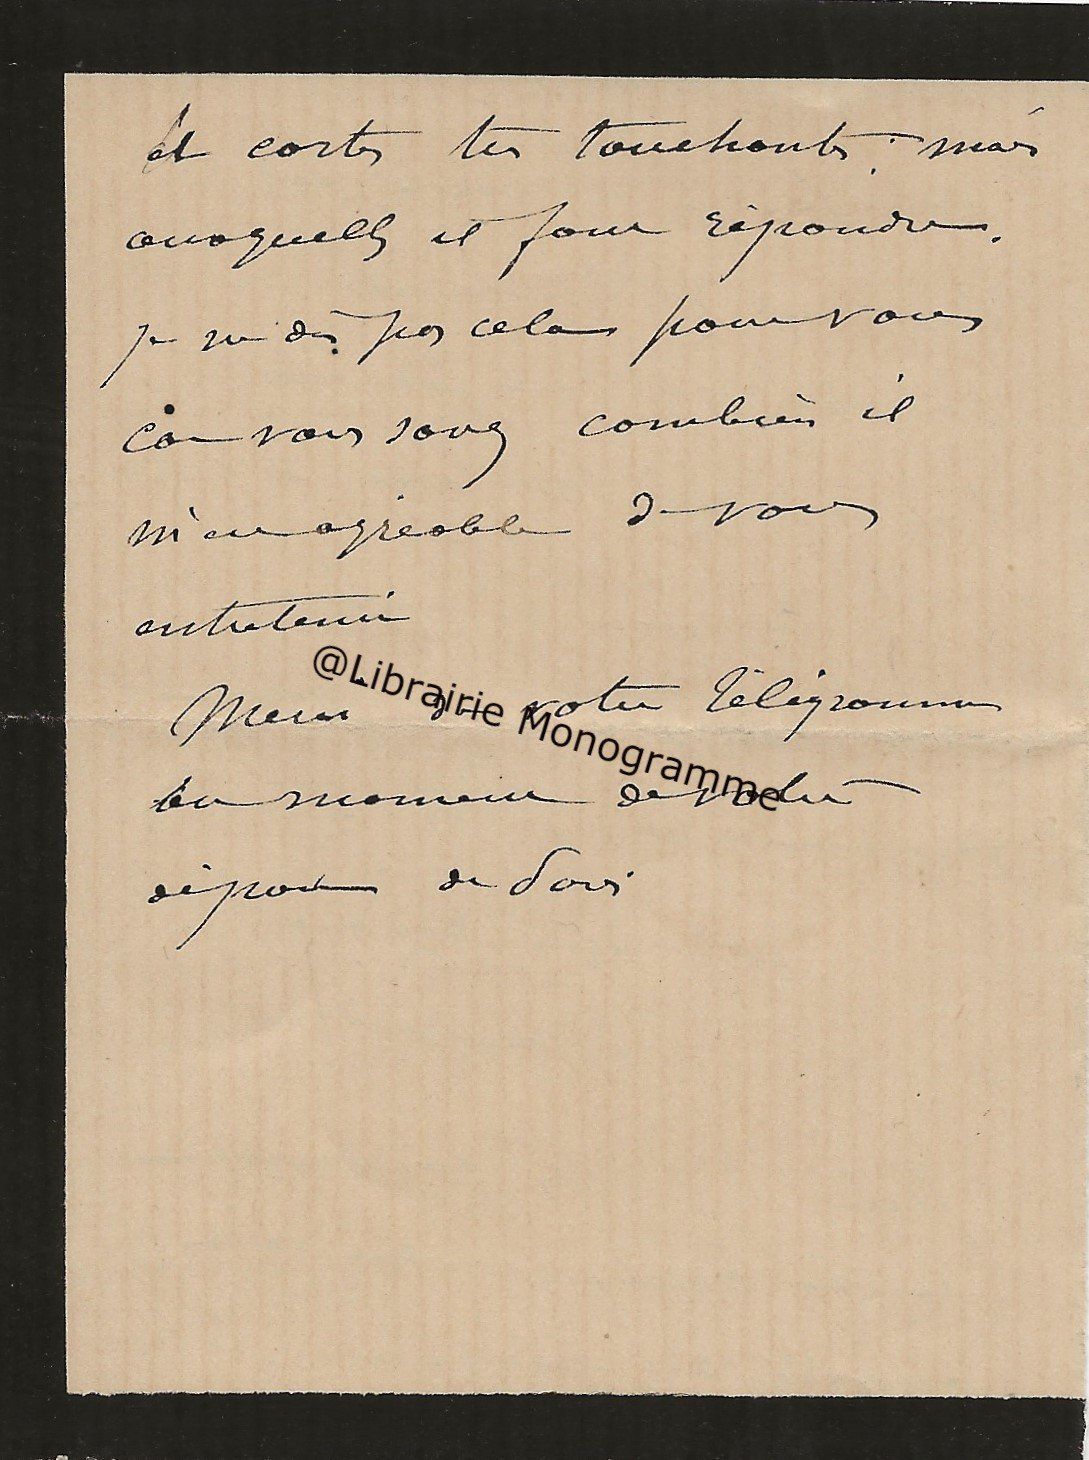 et cartes très touchants, mais
auxquelles il faut répondre.
je ne dis pas cela pour vous
car vous savez combien il
m'est agréable de vous
entretenir
Merci de votre télégramme
au moment de votre
départ de Paris
@Librairie Monogramme